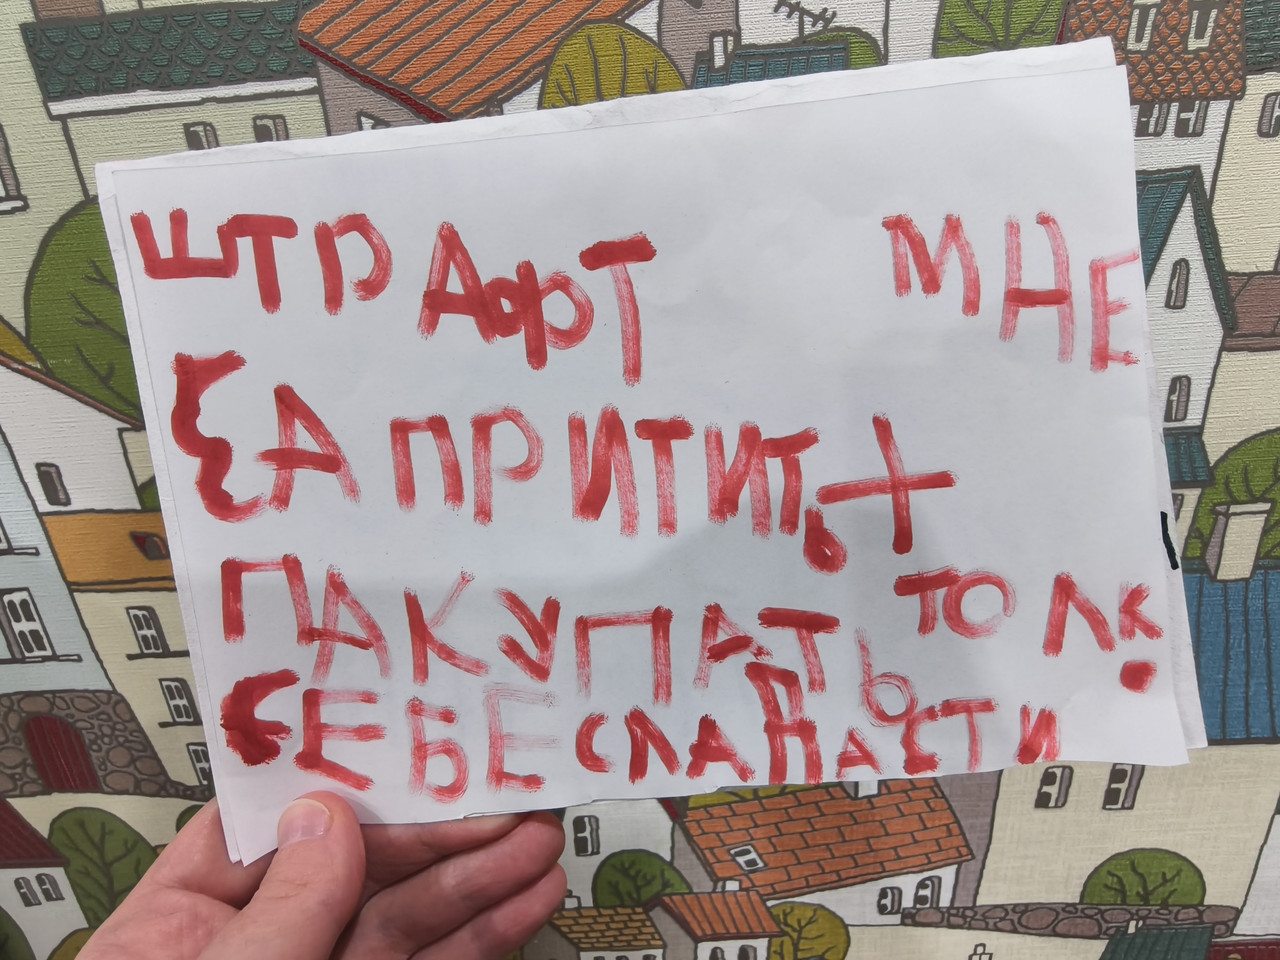 ШТРАФТ МНЕ
ЗАПРИТИТЬ +
ПАКУПАТЬ ТОЛК
СЕБЕ СЛАДАСТИ